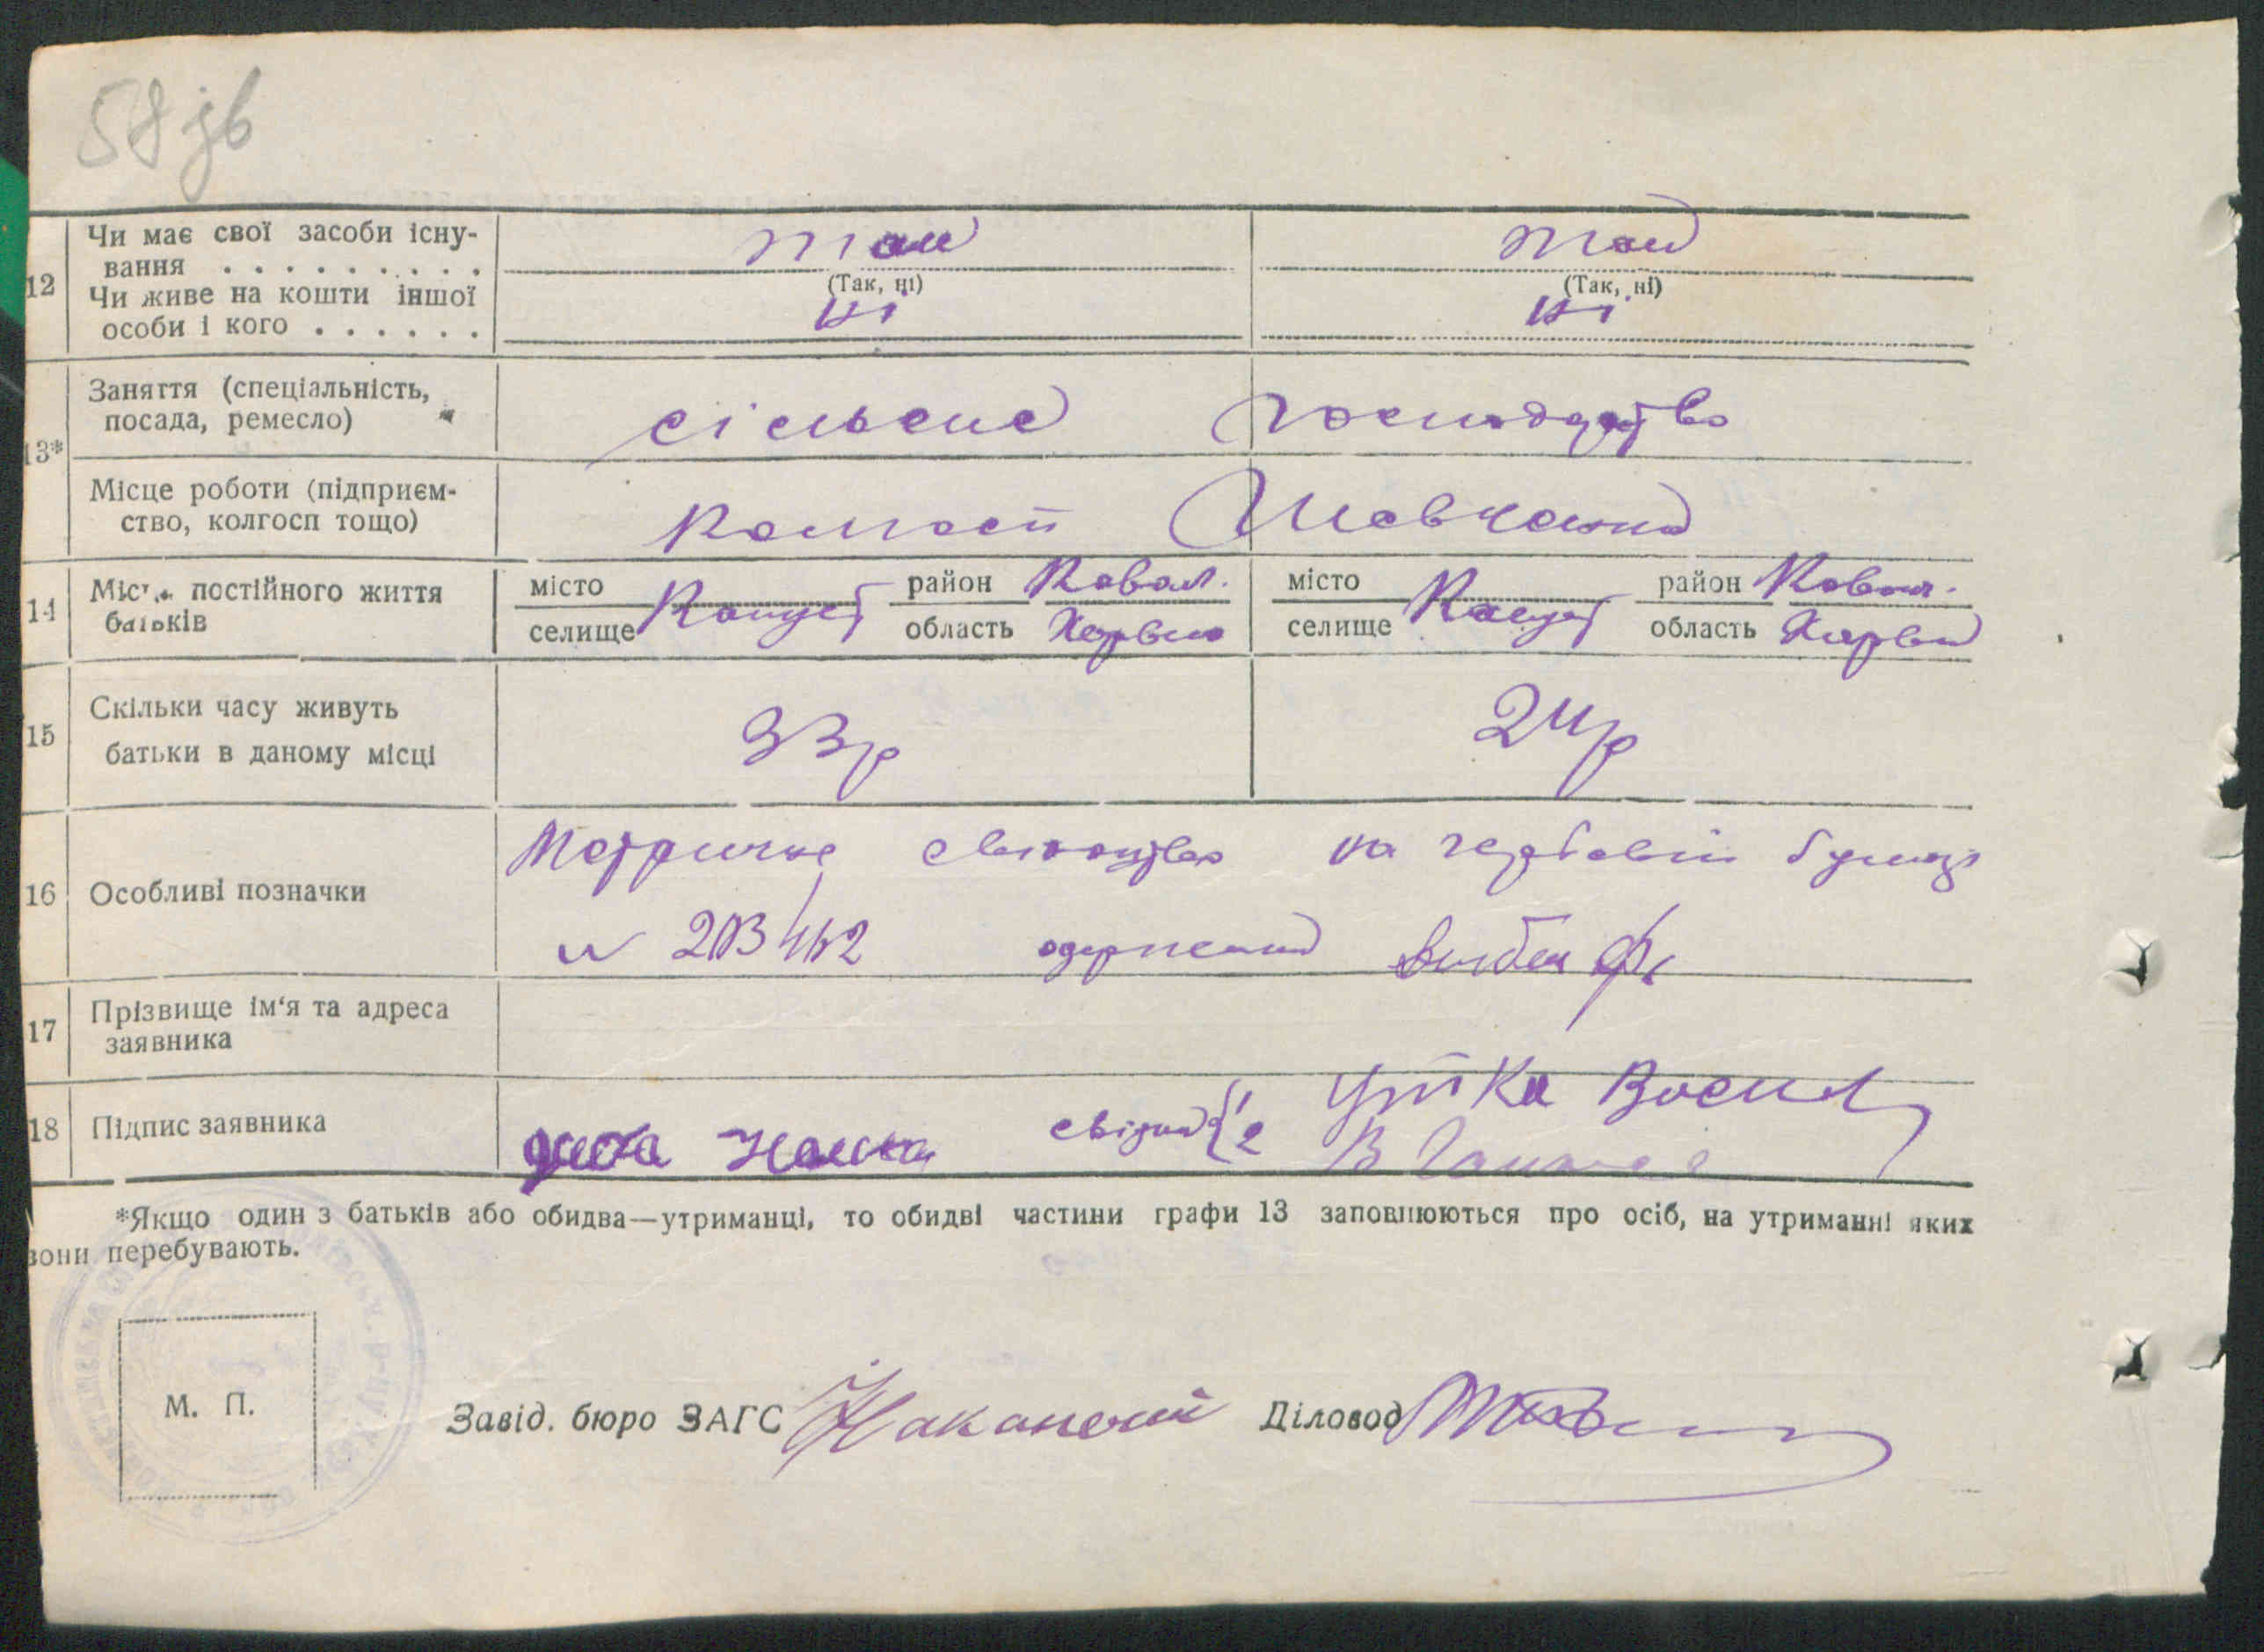 58 зв
12 Чи має свої засоби існу-
вання . . . . . . . . . . так так
(Так, ні) (Так, ні)
Чи живе на кошти іншої
особи і кого . . . . . . ні ні
13* Заняття (спеціальність,
посада, ремесло) сільське господарство
Місце роботи (підприєм-
ство, колгосп тощо) Колгосп Шевченка
14 Місце постійного життя
батьків
місто район Ковал. місто район Ковал.
селище Капуст область Харьвск селище Капуст область Харьв
15 Скільки часу живуть
батьки в даному місці 33р 24р
16 Особливі позначки
Метричне свідоцтво на гербовім бумазі
№ одержав
17 Прізвище ім'я та адреса
заявника
18 Підпис заявника
свідки 1 2
*Якщо один з батьків або обидва—утриманці, то обидві частини графи 13 заповнюються про осіб, на утриманні яких
вони перебувають.
М. П.
Завід. бюро ЗАГС Діловод